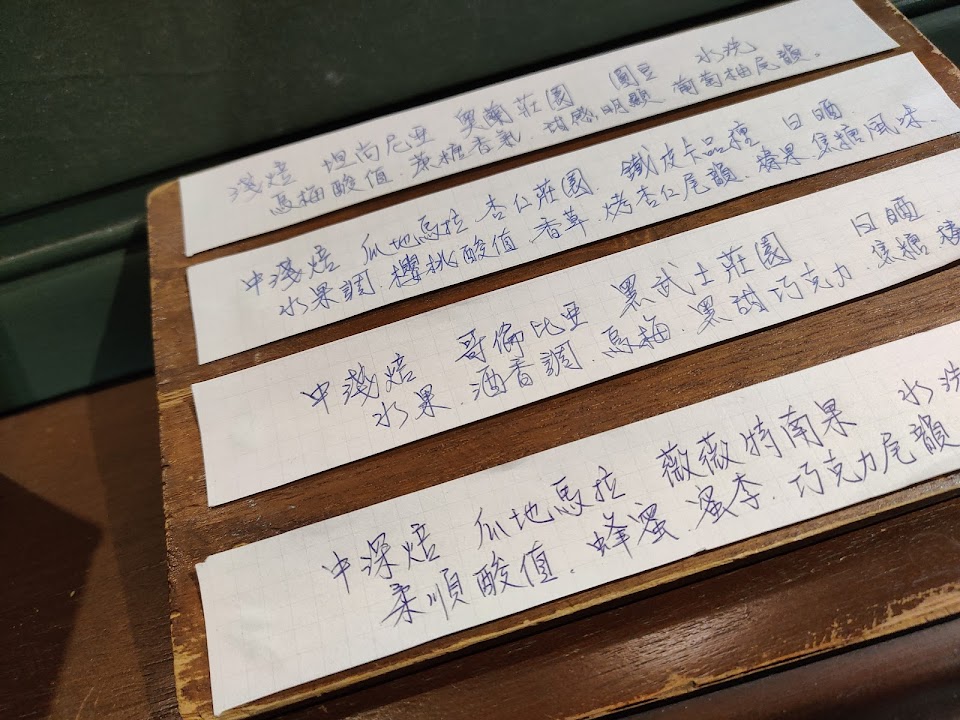 淺焙 坦尚尼亞 奧蘭莊園 圓豆 水洗
烏梅酸值.蔗糖香氣.甜感明顯 葡萄柚尾韻。
中淺焙 瓜地馬拉 杏仁莊園.鐵皮卡品種 日晒.
水果調.櫻桃酸值.香草.烤杏仁尾韻.榛果.焦糖風味.
中淺焙 哥倫比亞 黑武士莊園 日晒.
水果.酒香調.烏梅.黑甜巧克力.焦糖.榛
中深焙 瓜地馬拉 薇薇特南果 水洗
柔順酸值.蜂蜜.蜜李.巧克力尾韻